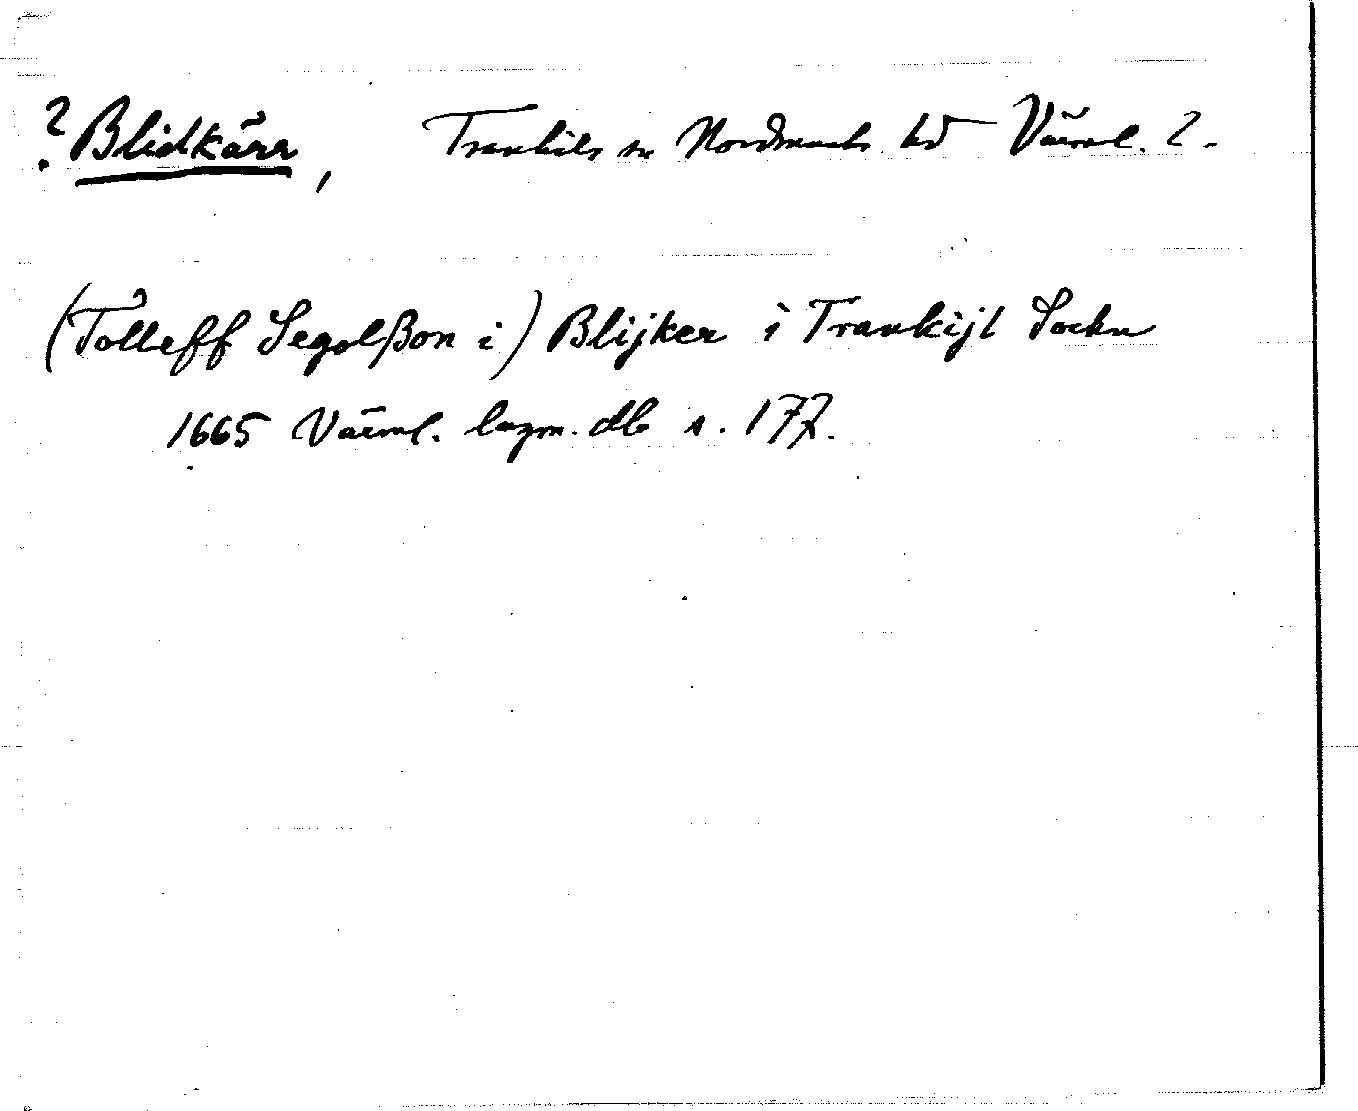 ? Blidkärr, Trankils sn Nordmarks hd Värml. ?.
(Tolleff Segolßon i) Blijker i Trankijl Sochn
1665 Värml. lagm. db s. 177.